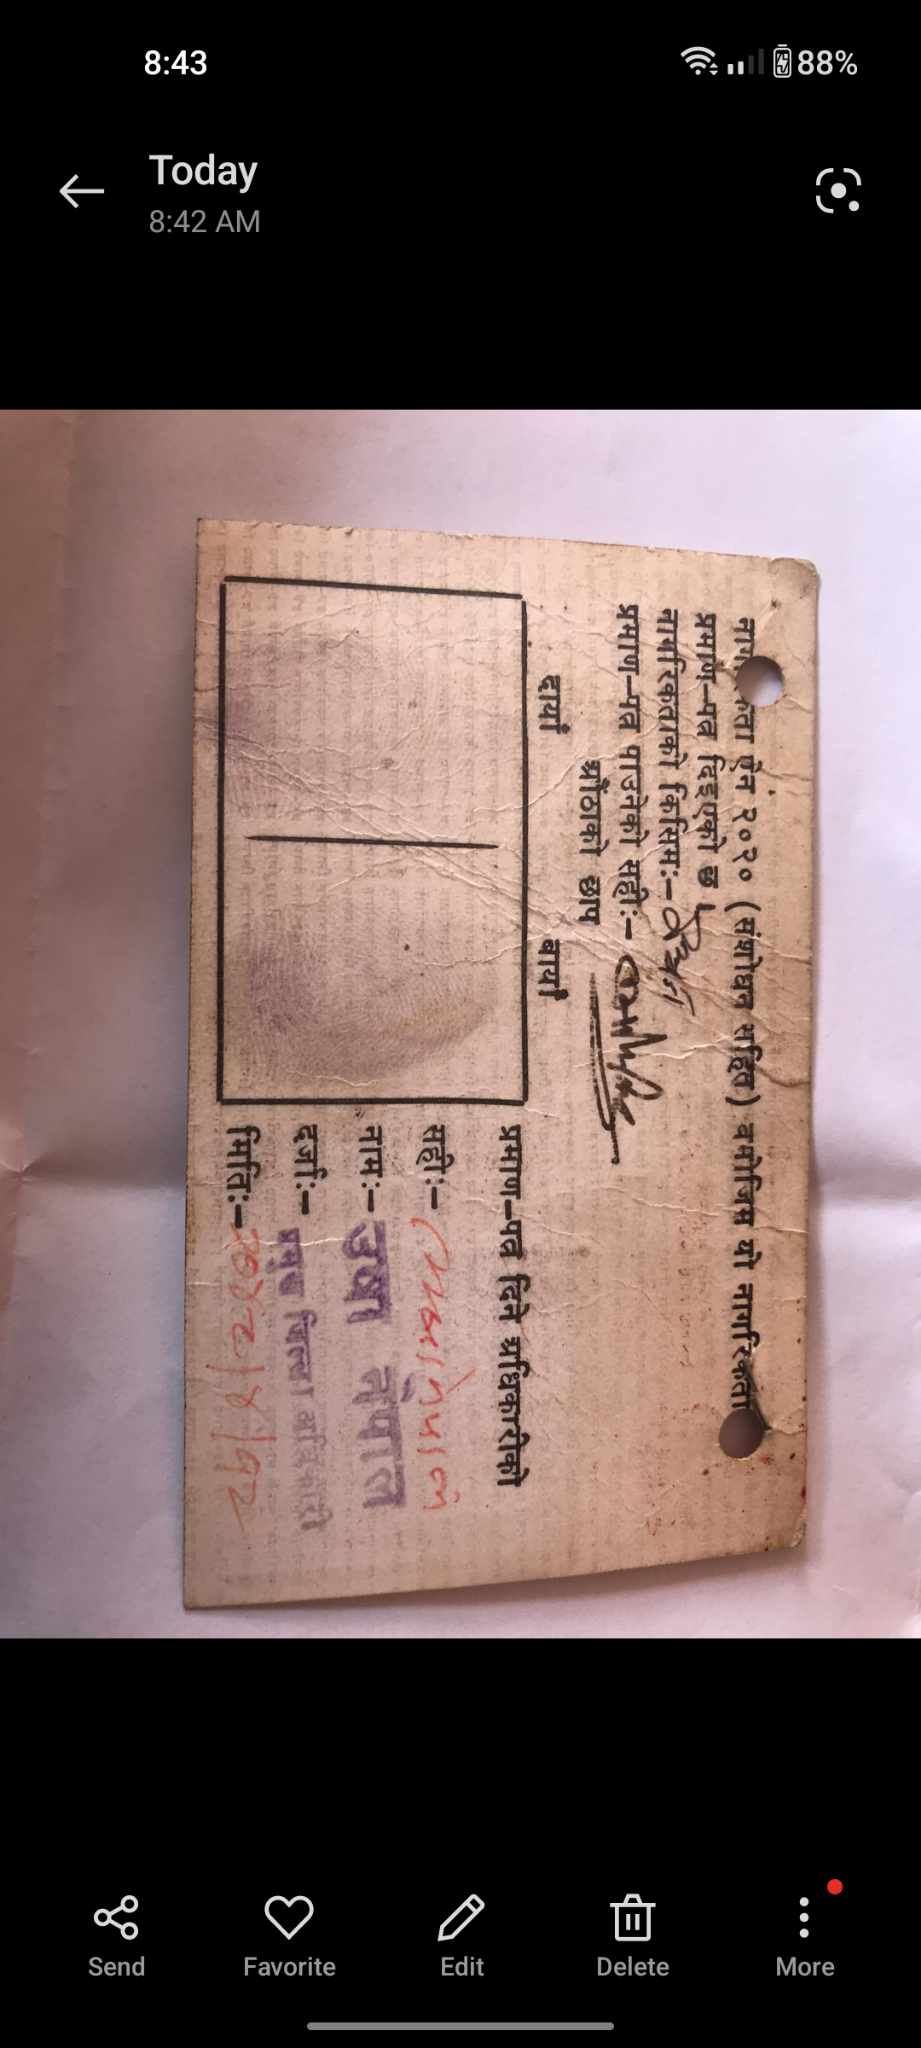 8:43
88%
Today
8:42 AM
नागरिकता ऐन २०२० (संशोधन सहित) बमोजिम यो नागरिकता
प्रमाण-पत्र दिइएको छ ।
नागरिकताको किसिम:- वंशज
प्रमाण-पत्र पाउनेको सही:-
औंठाको छाप
दायाँ बायाँ
प्रमाण-पत्र दिने अधिकारीको
सही:-
नाम:- उद्धव नेपाल
दर्जा:- प्रमुख जिल्ला अधिकारी
मिति:-
Send
Favorite
Edit
Delete
More